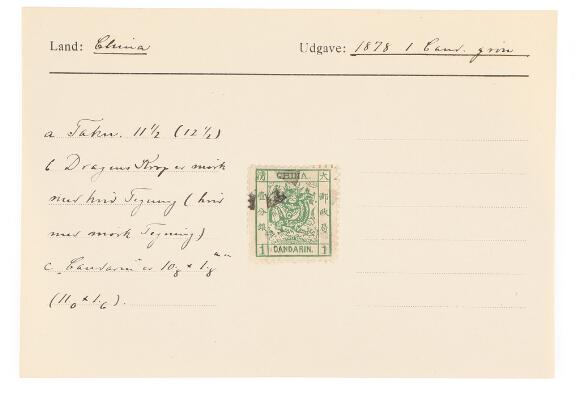 Land: China
Udgave: 1878 1 Cand. grøn
a Takn. 11½ (12½)
b Dragens Krop er mørk
med hvid Tegning (hvid
med mørk Tegning)
c „Candarin" er 10,8 × 1,8 mm
(11,0 × 1,6).
清 CHINA 大
壹分銀
郵政局
1 CANDARIN. 1